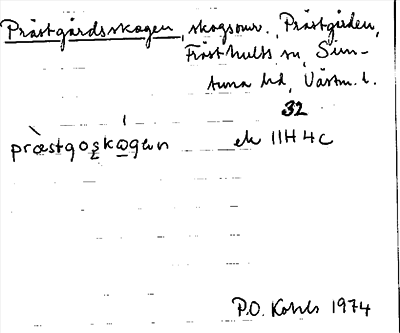 Prästgårdsskogen, skogsomr., Prästgården,
Frösthults sn, Sim-
tuna hd, Västm. l.
32
pròestgoskogen ek 11H4c
P.O. Kohls 1974